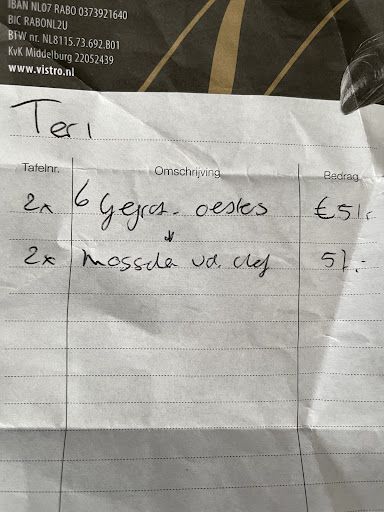 IBAN NL07 RABO 0373921640
BIC RABONL2U
BTW nr. NL8115.73.692.B01
KvK Middelburg 22052439
www.vistro.nl
Ter 1
Tafelnr. Omschrijving Bedrag
2x 6 Gegrat. oesters € 51,-
2x Mosselen v.d. chef 57,-